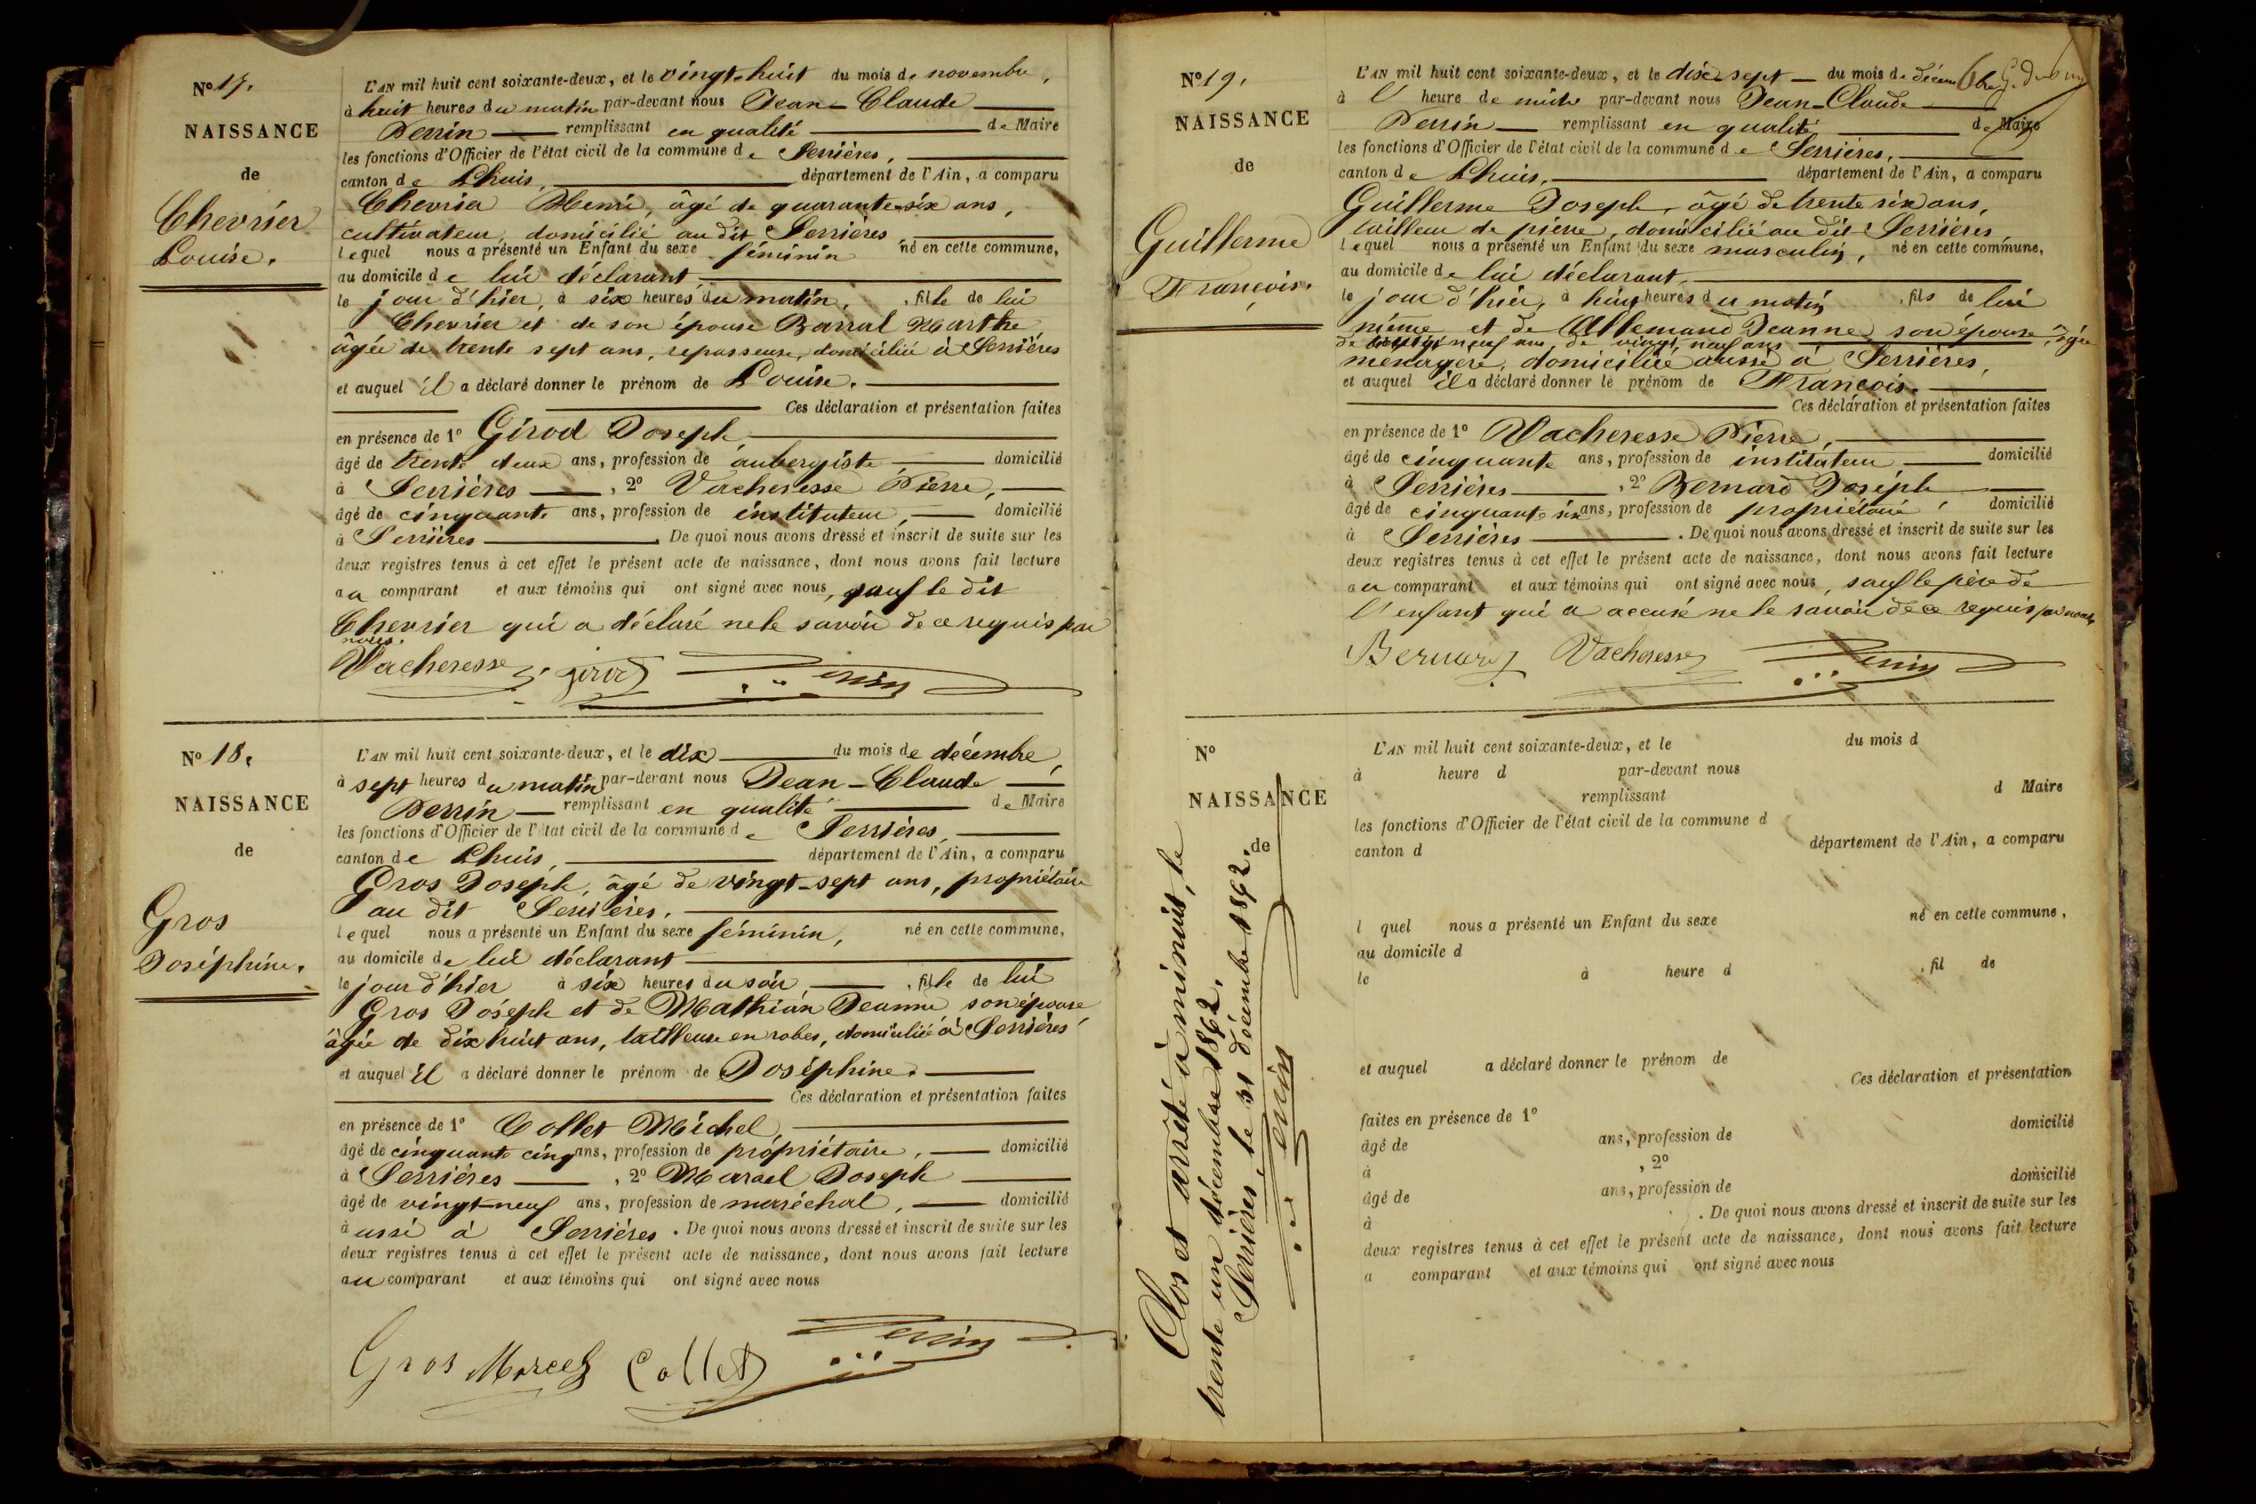 N° 17.
NAISSANCE
de
Chevrier
Louise.
L'AN mil huit cent soixante-deux, et le vingt-huit du mois de novembre,
à huit heures du matin par-devant nous Jean-Claude
Perrin remplissant en qualité de Maire
les fonctions d'Officier de l'état civil de la commune de Serrières,
canton de Lhuis, département de l'Ain, a comparu
Chevrier Henri, âgé de quarante-six ans,
cultivateur, domicilié au dit Serrières
lequel nous a présenté un Enfant du sexe féminin né en cette commune,
au domicile de lui déclarant
le jour d'hier, à six heures du matin, fille de lui
Chevrier et de son épouse Barral Marthe,
âgée de trente sept ans, repasseuse, domiciliée à Serrières
et auquel il a déclaré donner le prénom de Louise.
Ces déclaration et présentation faites
en présence de 1° Girod Joseph,
âgé de trente deux ans, profession de aubergiste domicilié
à Serrières, 2° Vacheresse Pierre,
âgé de cinquante ans, profession de instituteur, domicilié
à Serrières. De quoi nous avons dressé et inscrit de suite sur les
deux registres tenus à cet effet le présent acte de naissance, dont nous avons fait lecture
au comparant et aux témoins qui ont signé avec nous, sauf le dit
Chevrier qui a déclaré ne le savoir de ce requis par
nous.
Vacheresse girod Perrin
N° 18.
NAISSANCE
de
Gros
Joséphine.
L'AN mil huit cent soixante-deux, et le dix du mois de décembre,
à sept heures du matin par-devant nous Jean-Claude
Perrin remplissant en qualité de Maire
les fonctions d'Officier de l'état civil de la commune de Serrières,
canton de Lhuis, département de l'Ain, a comparu
Gros Joseph, âgé de vingt-sept ans, propriétaire
au dit Serrières.
lequel nous a présenté un Enfant du sexe féminin, né en cette commune,
au domicile de lui déclarant
le jour d'hier à six heures du soir, fille de lui
Gros Joseph et de Mathian Jeanne son épouse
âgée de dix huit ans, tailleuse en robes, domiciliée à Serrières
et auquel il a déclaré donner le prénom de Joséphine.
Ces déclaration et présentation faites
en présence de 1° Collet Michel,
âgé de cinquante cinq ans, profession de propriétaire, domicilié
à Serrières, 2° Marcel Joseph
âgé de vingt-neuf ans, profession de maréchal, domicilié
aussi à Serrières. De quoi nous avons dressé et inscrit de suite sur les
deux registres tenus à cet effet le présent acte de naissance, dont nous avons fait lecture
au comparant et aux témoins qui ont signé avec nous
Gros Marcel Collet Perrin
N° 19.
NAISSANCE
de
Guillerme
François.
L'AN mil huit cent soixante-deux, et le dix-sept du mois de décembre,
à l'heure de midi par-devant nous Jean-Claude
Perrin remplissant en qualité de Maire
les fonctions d'Officier de l'état civil de la commune de Serrières,
canton de Lhuis, département de l'Ain, a comparu
Guillerme Joseph, âgé de trente six ans,
tailleur de pierre, domicilié au dit Serrières,
lequel nous a présenté un Enfant du sexe masculin, né en cette commune,
au domicile de lui déclarant,
le jour d'hier, à huit heures du matin, fils de lui
même et de Allemand Jeanne son épouse, âgée
de vingt neuf ans
ménagère, domiciliée aussi à Serrières,
et auquel il a déclaré donner le prénom de François.
Ces déclaration et présentation faites
en présence de 1° Vacheresse Pierre,
âgé de cinquante ans, profession de instituteur domicilié
à Serrières, 2° Bernard Joseph
âgé de cinquante six ans, profession de propriétaire, domicilié
à Serrières. De quoi nous avons dressé et inscrit de suite sur les
deux registres tenus à cet effet le présent acte de naissance, dont nous avons fait lecture
au comparant et aux témoins qui ont signé avec nous, sauf le père de
l'enfant qui a accusé ne le savoir de ce requis par nous
Bernard Vacheresse Perrin
N°
NAISSANCE
de
L'AN mil huit cent soixante-deux, et le du mois d
à heure d par-devant nous
remplissant d Maire
les fonctions d'Officier de l'état civil de la commune d
canton d département de l'Ain, a comparu
l quel nous a présenté un Enfant du sexe né en cette commune,
au domicile d
le à heure d , fil de
et auquel a déclaré donner le prénom de
Ces déclaration et présentation
faites en présence de 1°
âgé de ans, profession de domicilié
à , 2°
âgé de ans, profession de domicilié
à . De quoi nous avons dressé et inscrit de suite sur les
deux registres tenus à cet effet le présent acte de naissance, dont nous avons fait lecture
a comparant et aux témoins qui ont signé avec nous
Clos et arrêté à minuit, le
trente un décembre 1862.
Serrières le 31 décembre 1862.
Perrin